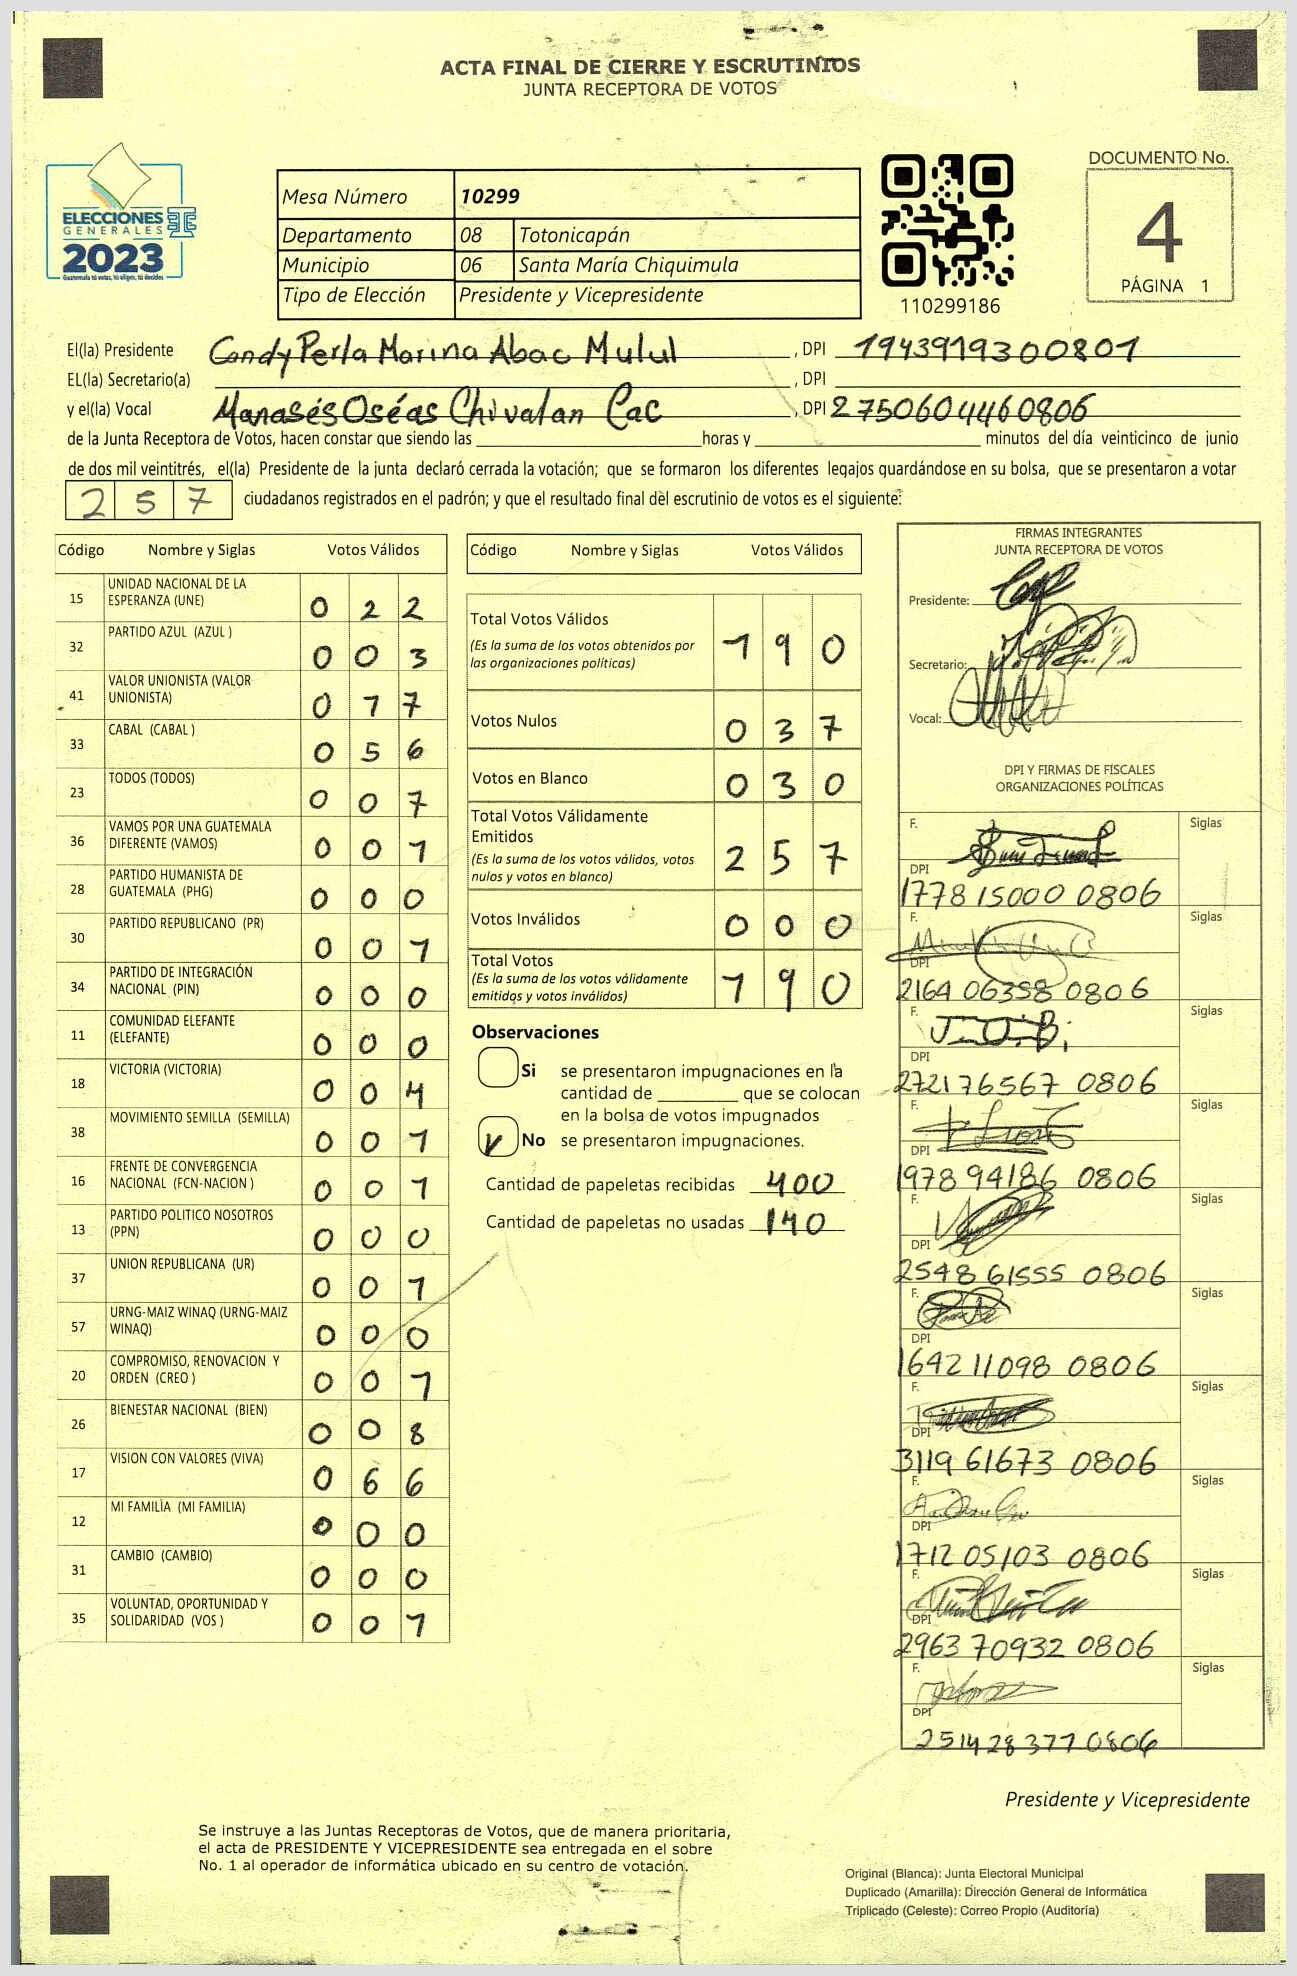 ACTA FINAL DE CIERRE Y ESCRUTINIOS
JUNTA RECEPTORA DE VOTOS
ELECCIONES
GENERALES
2023
Guatemala tú votas, tú eliges, tú decides
Mesa Número 10299
Departamento 08 Totonicapán
Municipio 06 Santa María Chiquimula
Tipo de Elección Presidente y Vicepresidente
110299186
DOCUMENTO No.
4
PÁGINA 1
El(la) Presidente Candy Perla Marina Abac Mulul, DPI 1943919300801
EL(la) Secretario(a) , DPI
y el(la) Vocal Manasés Oséas Chivalan Cac, DPI 2750604460806
de la Junta Receptora de Votos, hacen constar que siendo las horas y minutos del día veinticinco de junio
de dos mil veintitrés, el(la) Presidente de la junta declaró cerrada la votación; que se formaron los diferentes legajos guardándose en su bolsa, que se presentaron a votar
257 ciudadanos registrados en el padrón; y que el resultado final del escrutinio de votos es el siguiente:
Código Nombre y Siglas Votos Válidos
15 UNIDAD NACIONAL DE LA ESPERANZA (UNE) 022
32 PARTIDO AZUL (AZUL ) 003
41 VALOR UNIONISTA (VALOR UNIONISTA) 017
33 CABAL (CABAL ) 056
23 TODOS (TODOS) 007
36 VAMOS POR UNA GUATEMALA DIFERENTE (VAMOS) 001
28 PARTIDO HUMANISTA DE GUATEMALA (PHG) 000
30 PARTIDO REPUBLICANO (PR) 001
34 PARTIDO DE INTEGRACIÓN NACIONAL (PIN) 000
11 COMUNIDAD ELEFANTE (ELEFANTE) 000
18 VICTORIA (VICTORIA) 004
38 MOVIMIENTO SEMILLA (SEMILLA) 001
16 FRENTE DE CONVERGENCIA NACIONAL (FCN-NACION ) 001
13 PARTIDO POLITICO NOSOTROS (PPN) 000
37 UNION REPUBLICANA (UR) 001
57 URNG-MAIZ WINAQ (URNG-MAIZ WINAQ) 000
20 COMPROMISO, RENOVACION Y ORDEN (CREO ) 001
26 BIENESTAR NACIONAL (BIEN) 008
17 VISION CON VALORES (VIVA) 066
12 MI FAMILIA (MI FAMILIA) 000
31 CAMBIO (CAMBIO) 000
35 VOLUNTAD, OPORTUNIDAD Y SOLIDARIDAD (VOS ) 001
Código Nombre y Siglas Votos Válidos
Total Votos Válidos 190
(Es la suma de los votos obtenidos por
las organizaciones políticas)
Votos Nulos 037
Votos en Blanco 030
Total Votos Válidamente
Emitidos 257
(Es la suma de los votos válidos, votos
nulos y votos en blanco)
Votos Inválidos 000
Total Votos 190
(Es la suma de los votos válidamente
emitidos y votos inválidos)
Observaciones
Si se presentaron impugnaciones en la
cantidad de que se colocan
en la bolsa de votos impugnados
No se presentaron impugnaciones.
Cantidad de papeletas recibidas 400
Cantidad de papeletas no usadas 140
FIRMAS INTEGRANTES
JUNTA RECEPTORA DE VOTOS
Presidente:
Secretario:
Vocal:
DPI Y FIRMAS DE FISCALES
ORGANIZACIONES POLÍTICAS
F. Siglas
DPI
1778 15000 0806
F. Siglas
DPI
2164 06358 0806
F. Siglas
DPI
2721 76567 0806
F. Siglas
DPI
1978 94186 0806
F. Siglas
DPI
2548 61555 0806
F. Siglas
DPI
1642 11098 0806
F. Siglas
DPI
3119 61673 0806
F. Siglas
DPI
1712 05103 0806
F. Siglas
DPI
2963 70932 0806
F. Siglas
DPI
2514 28377 0806
Presidente y Vicepresidente
Se instruye a las Juntas Receptoras de Votos, que de manera prioritaria,
el acta de PRESIDENTE Y VICEPRESIDENTE sea entregada en el sobre
No. 1 al operador de informática ubicado en su centro de votación.
Original (Blanca): Junta Electoral Municipal
Duplicado (Amarilla): Dirección General de Informática
Triplicado (Celeste): Correo Propio (Auditoría)